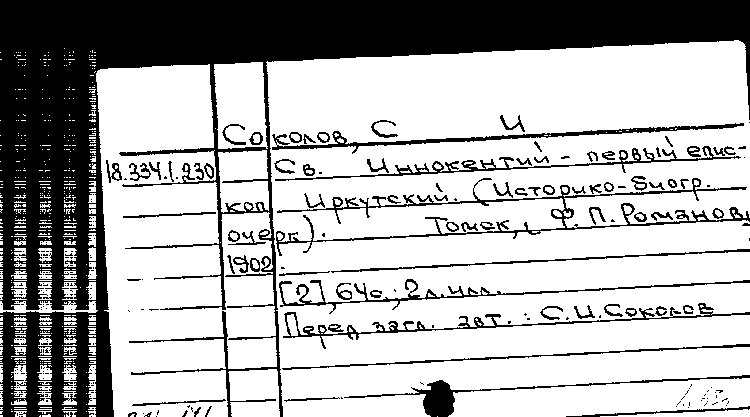 Соколов, С И
18.334.1.230 Св. Иннокентий - первый епис-
коп Иркутский. (Историко-биогр.
очерк). Томск, Ф. П. Романов,
1902.
[2], 64 с.; 2 л. илл.
Перед загл. авт.: С.И.Соколов